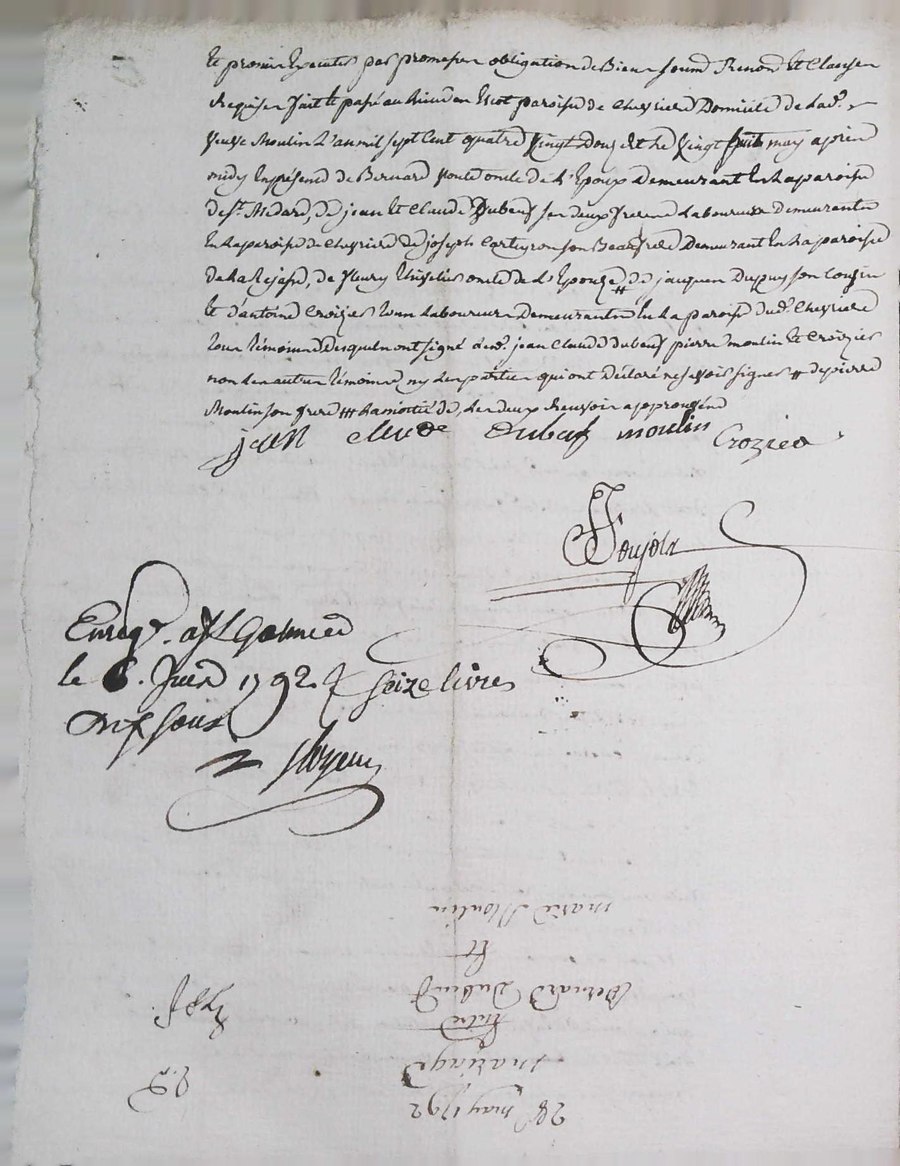 Et promis Executer par promesse obligation de Biens soumis Renonc Et Clauses
Requises fait et passé au lieu paroisse de Cheyrieres Domicile de lad.e
veuve Moulin L'an mil sept Cent quatre Vingt Douze Et Le Vingt huit may apres
midy En presence de Bernard oncle de L'Epoux Demeurant En La paroisse
de St. Medard, de jean Et Claude Dubeuf ses deux freres Laboureurs Demeurants
En La paroisse de Cheyrieres de joseph son Beaufrere Demeurant En La paroisse
de La, de fleury oncle de L'Epouze # de jacques Dupuy son Cousin
Et d'antoine Croizier tous Laboureurs Demeurants En La paroisse dud. Cheyrieres
tous temoins desquels ont signé Lesd. jean Claude dubeuf pierre moulin Et Croizier
non Les autres temoins ny Les parties qui ont déclaré ne savoir signer # de pierre
Moulin son frere ## La moitié de, Les deux Renvois approuvés
jean claude dubeuf moulin Crozier
Poujols
Enregr. a St Galmier
le 6. Juin 1792. R seize livres
dix sous
28e may 1792
mariage
Entre
Bernard Dubeuf
Et
marie Moulin